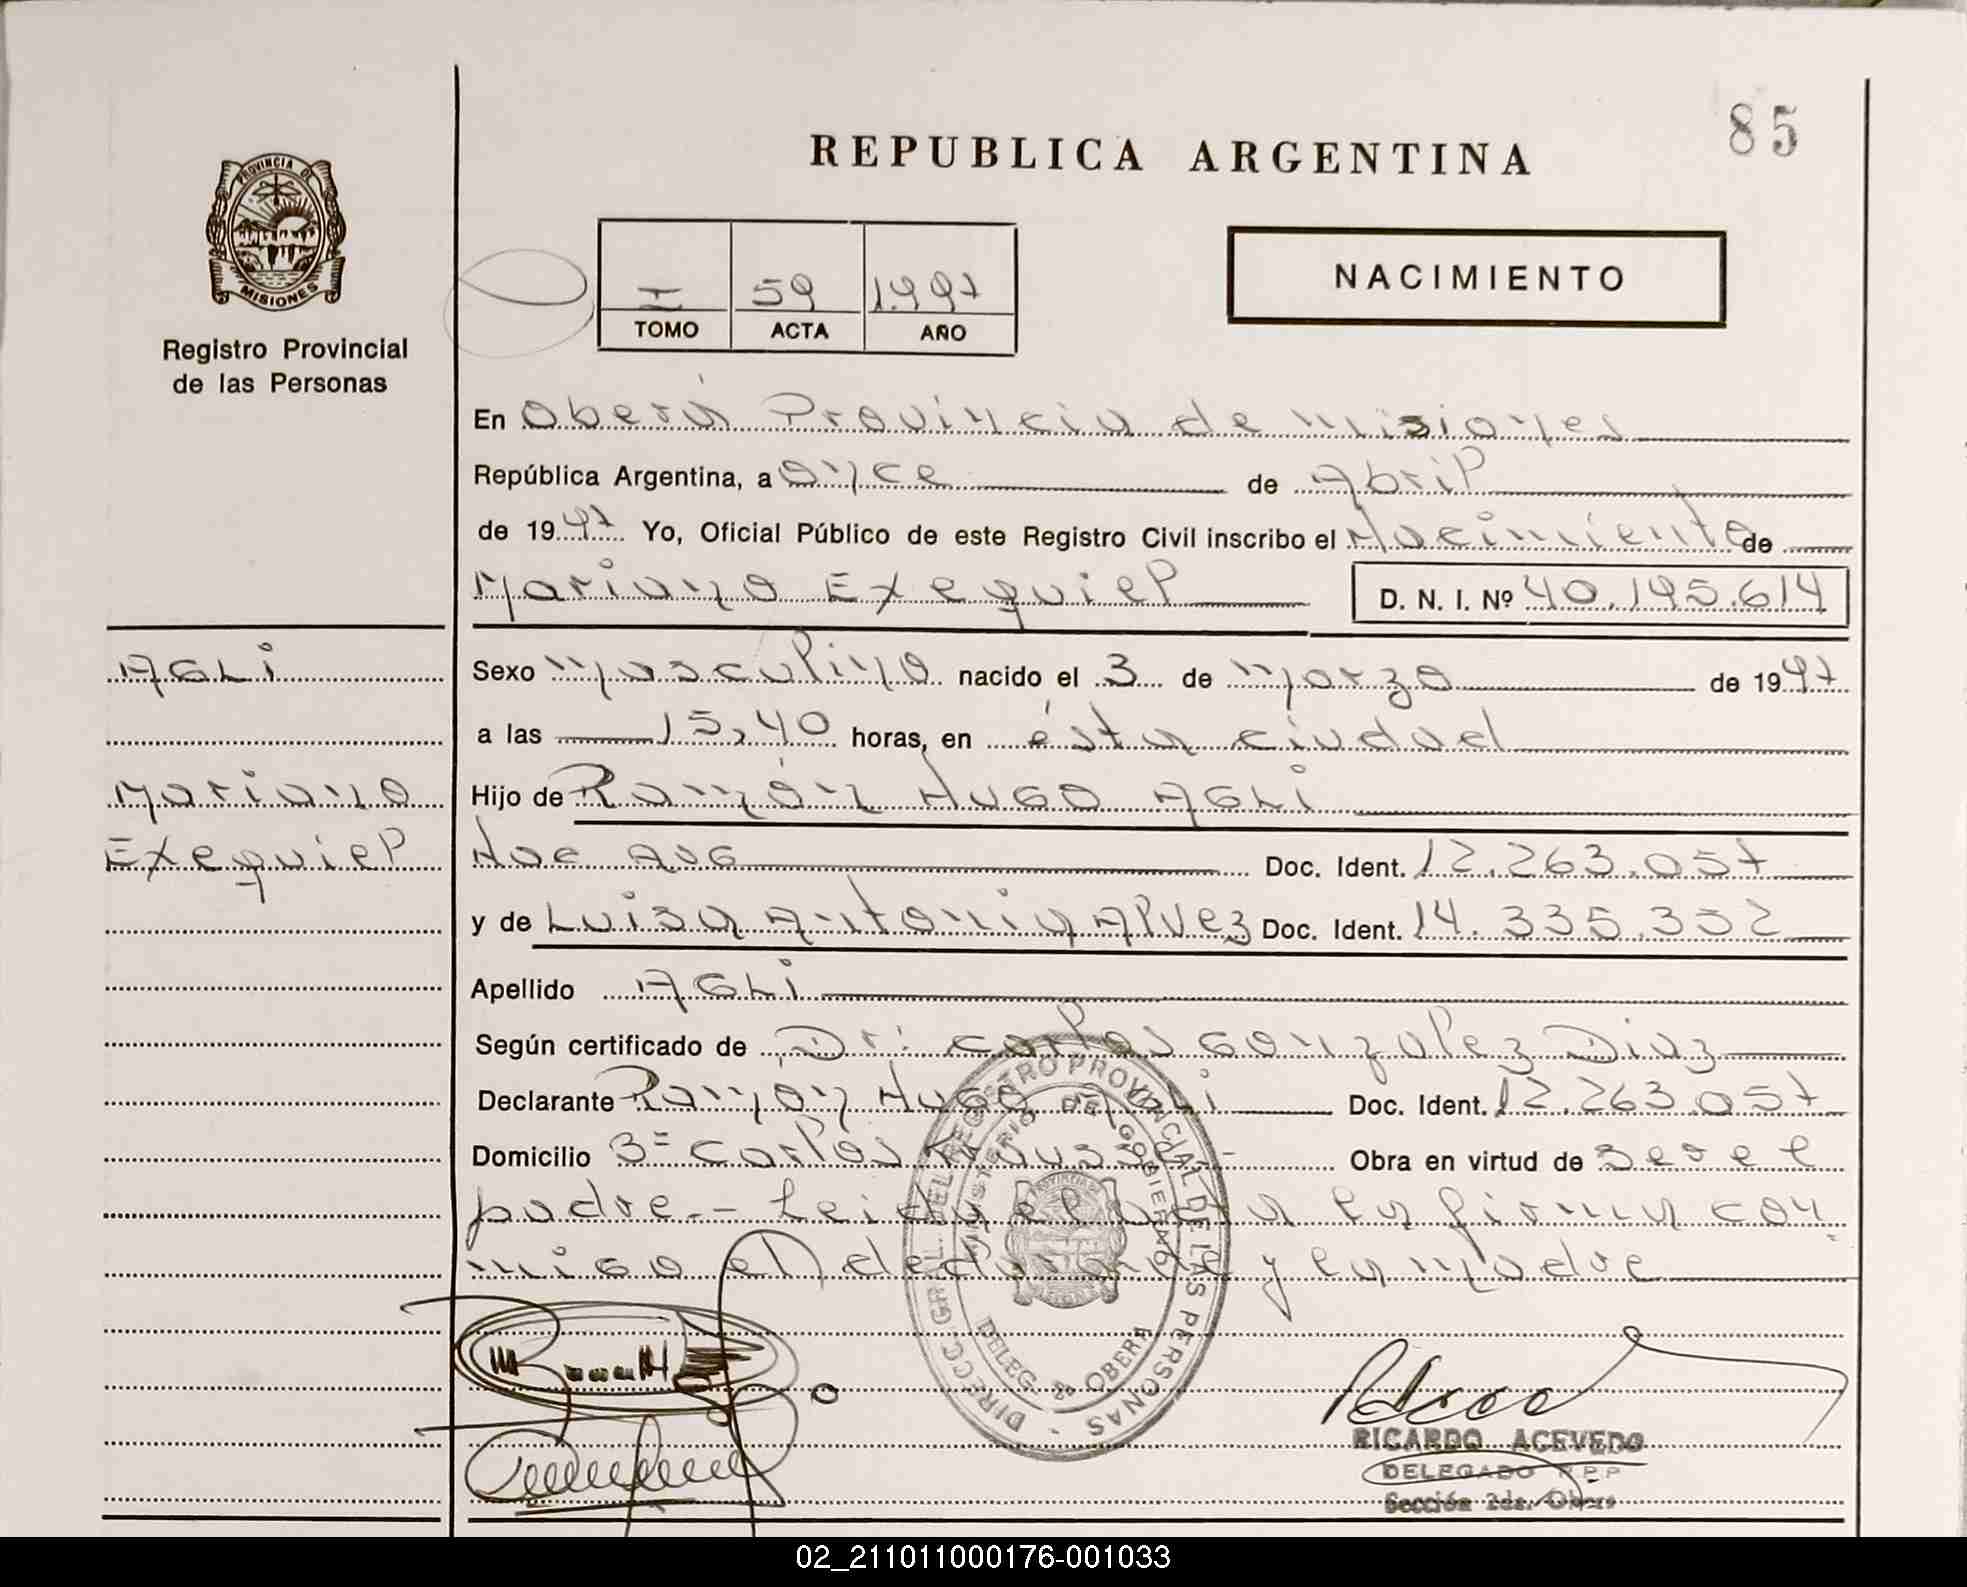 85
REPUBLICA ARGENTINA
PROVINCIA DE
MISIONES
Registro Provincial
de las Personas
NACIMIENTO
I 59 1.997
TOMO ACTA AÑO
En Oberá Provincia de Misiones
República Argentina, a Once de Abril
de 1997 Yo, Oficial Público de este Registro Civil inscribo el Nacimiento de
Mariano Exequiel D. N. I. Nº 40.195.614
AGLI
Sexo Masculino nacido el 3 de Marzo de 1997
a las 15,40 horas, en ésta ciudad
Mariano
Exequiel
Hijo de Ramón Hugo AGLI
Nac Arg Doc. Ident. 12.263.057
y de Luisa Antonia Alvez Doc. Ident. 14.335.352
Apellido AGLI
Según certificado de Dr: Carlos Gonzalez Diaz
Declarante Ramón Hugo Agli Doc. Ident. 12.263.057
Domicilio 3= Carlos Obra en virtud de ser el
padre.-- Leida el acta la firma con
migo el declarante y la madre
DIRECC. GRAL. DEL REGISTRO PROVINCIAL DE LAS PERSONAS
MINISTERIO DE GOBIERNO
DELEG. OBERA
RICARDO ACEVEDO
DELEGADO R.P.P
Sección 2da. Obera
02_211011000176-001033